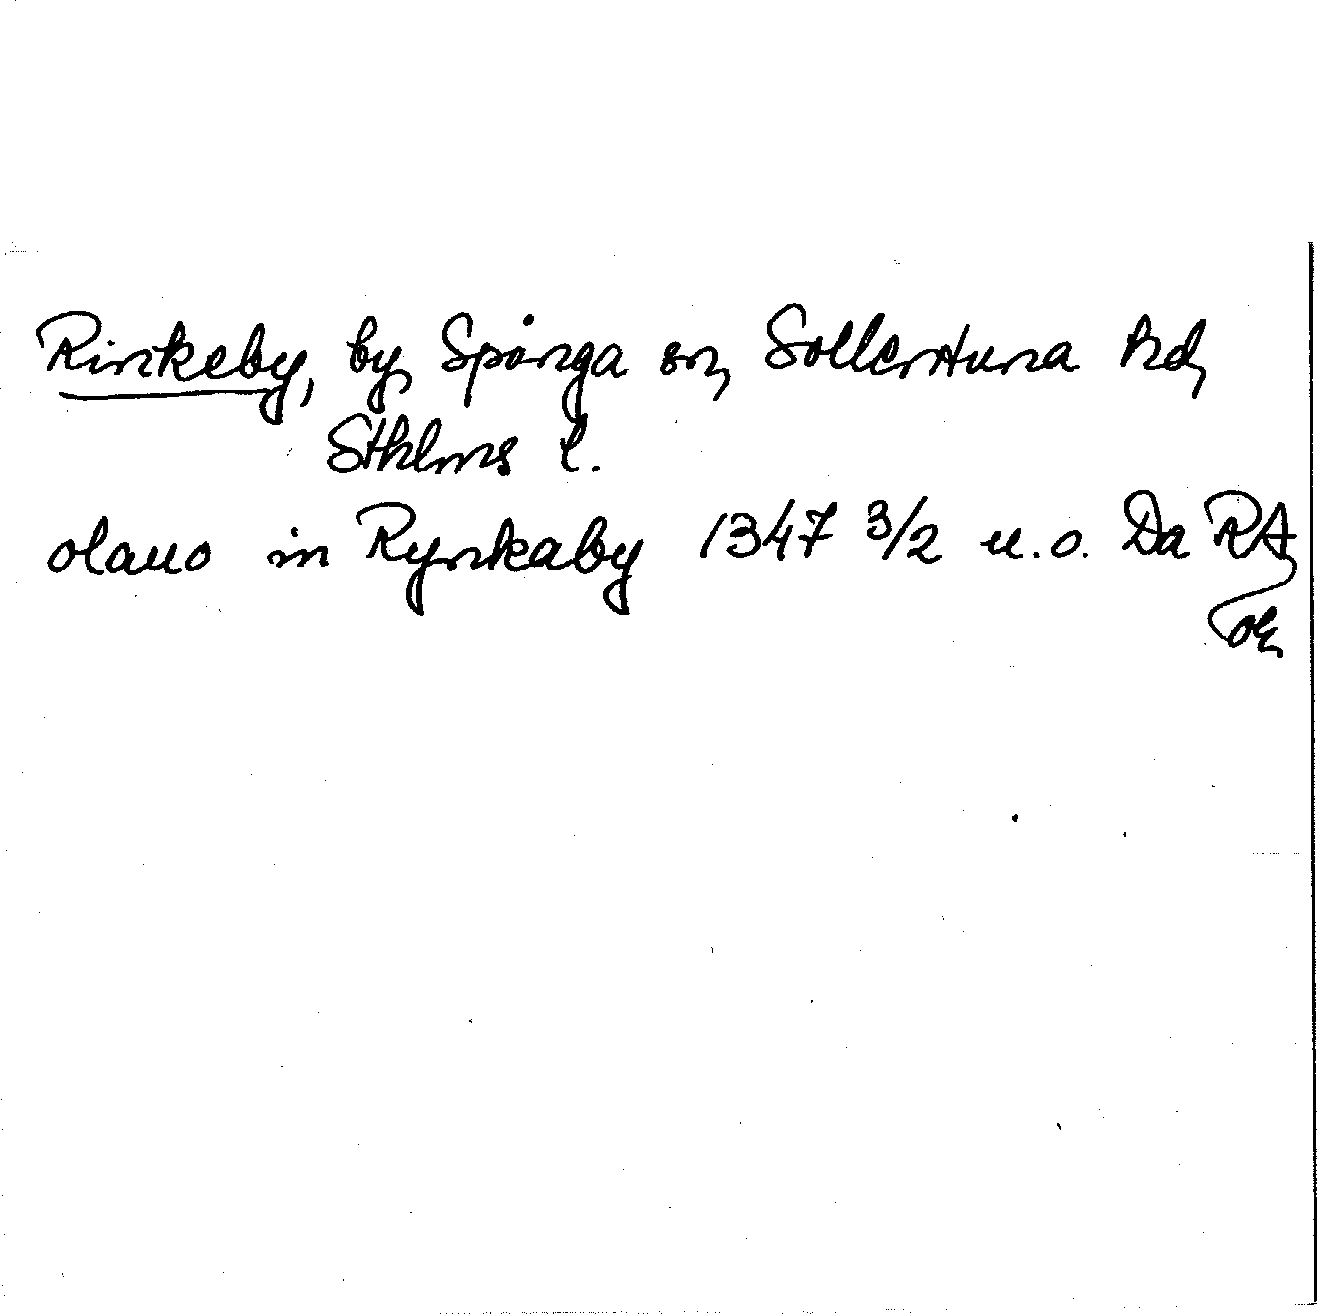 Rinkeby, by, Spånga sn, Sollentuna hd,
Sthlms l.
olauo in Rynkaby 1347 3/2 u.o. Da RA
or.